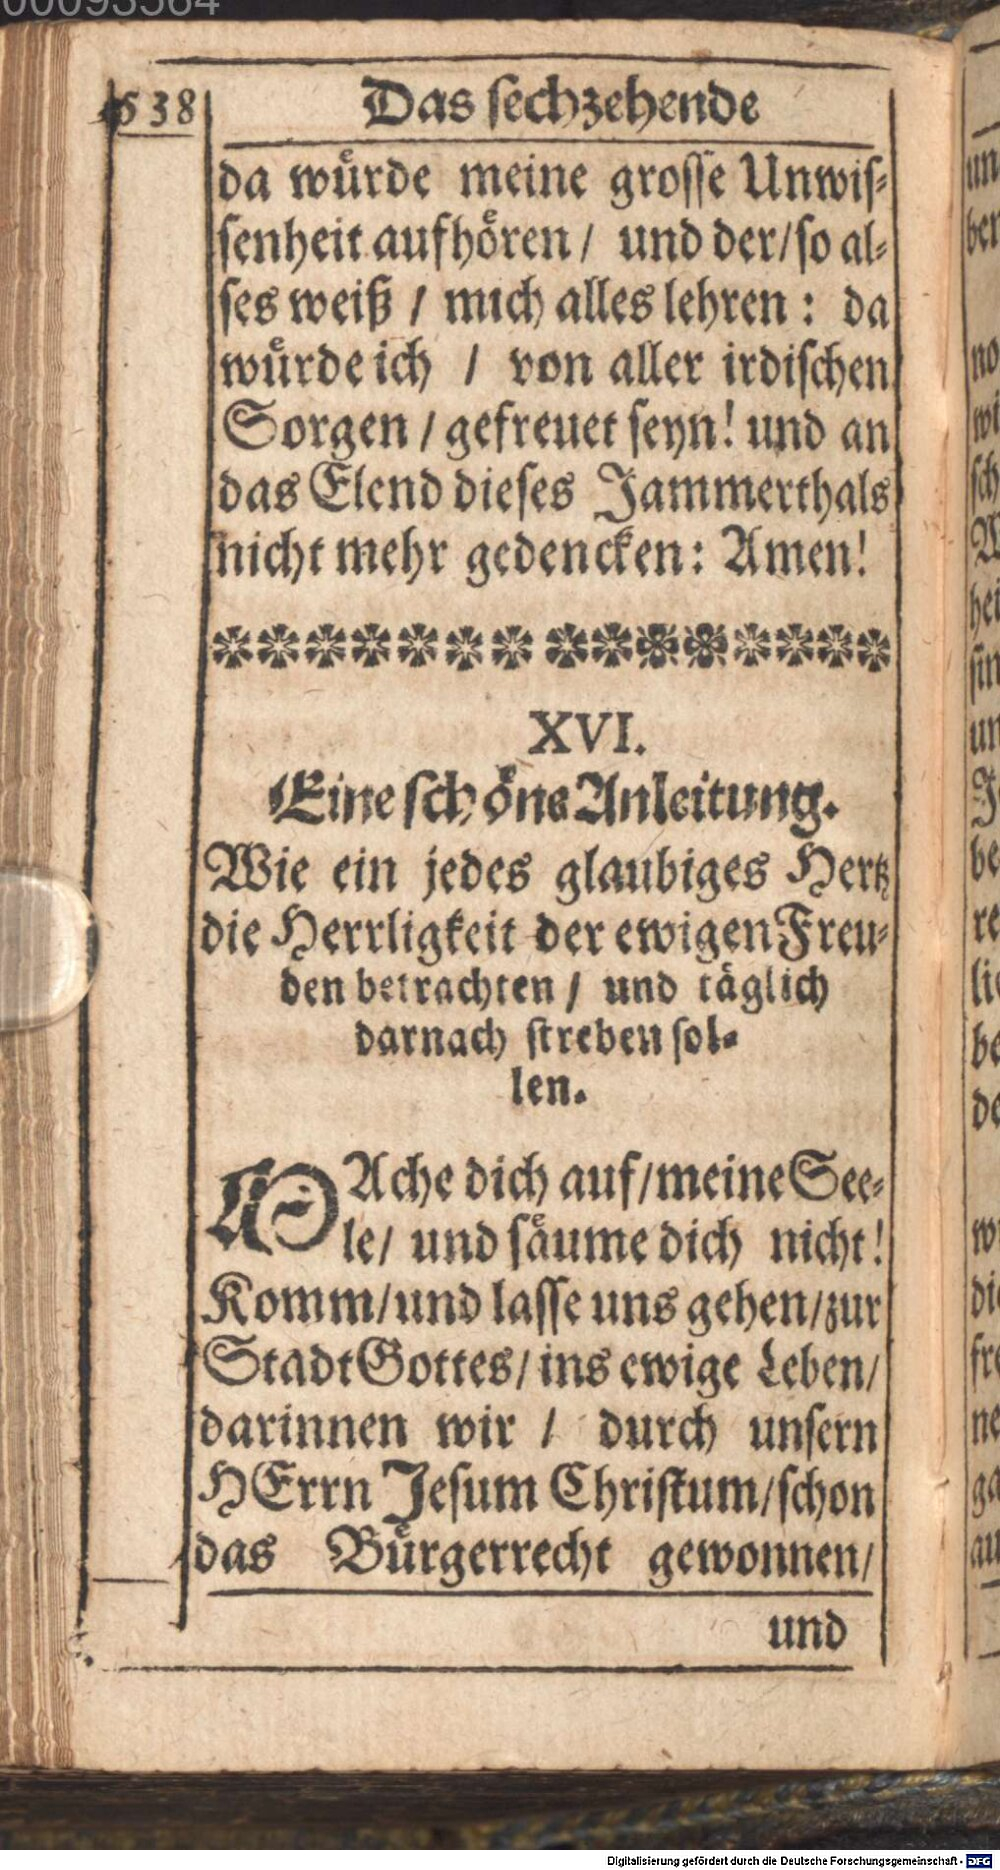 538
Das sechzehende
da wuͤrde meine grosse Unwis-
senheit aufhoͤren / und der / so al-
ses weiß / mich alles lehren : da
wuͤrde ich / von aller irdischen
Sorgen / gefreuet seyn! und an
das Elend dieses Jammerthals
nicht mehr gedencken: Amen!
XVI.
Eine schoͤne Anleitung.
Wie ein jedes glaubiges Hertz
die Herrligkeit der ewigen Freu-
den betrachten / und täglich
darnach streben sol-
len.
MAche dich auf / meine See-
le / und saͤume dich nicht!
Komm / und lasse uns gehen / zur
Stadt Gottes / ins ewige Leben /
darinnen wir / durch unsern
HErrn Jesum Christum / schon
das Buͤrgerrecht gewonnen /
und
Digitalisierung gefördert durch die Deutsche Forschungsgemeinschaft - DFG